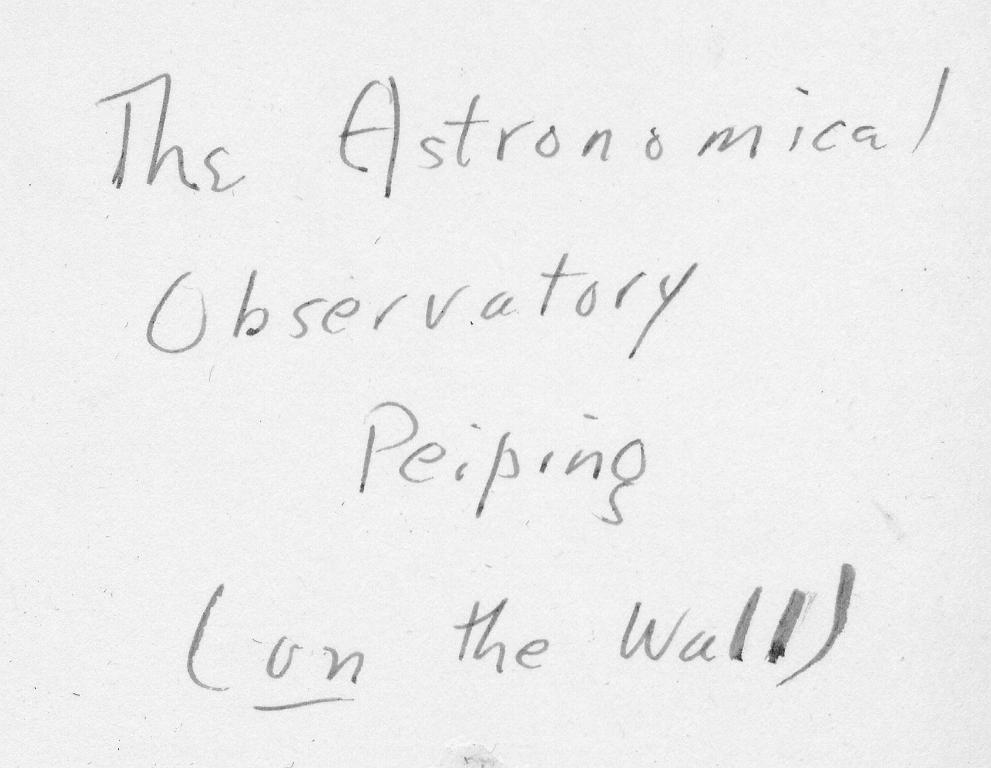 The Astronomical
Observatory
Peiping
(on the Wall)